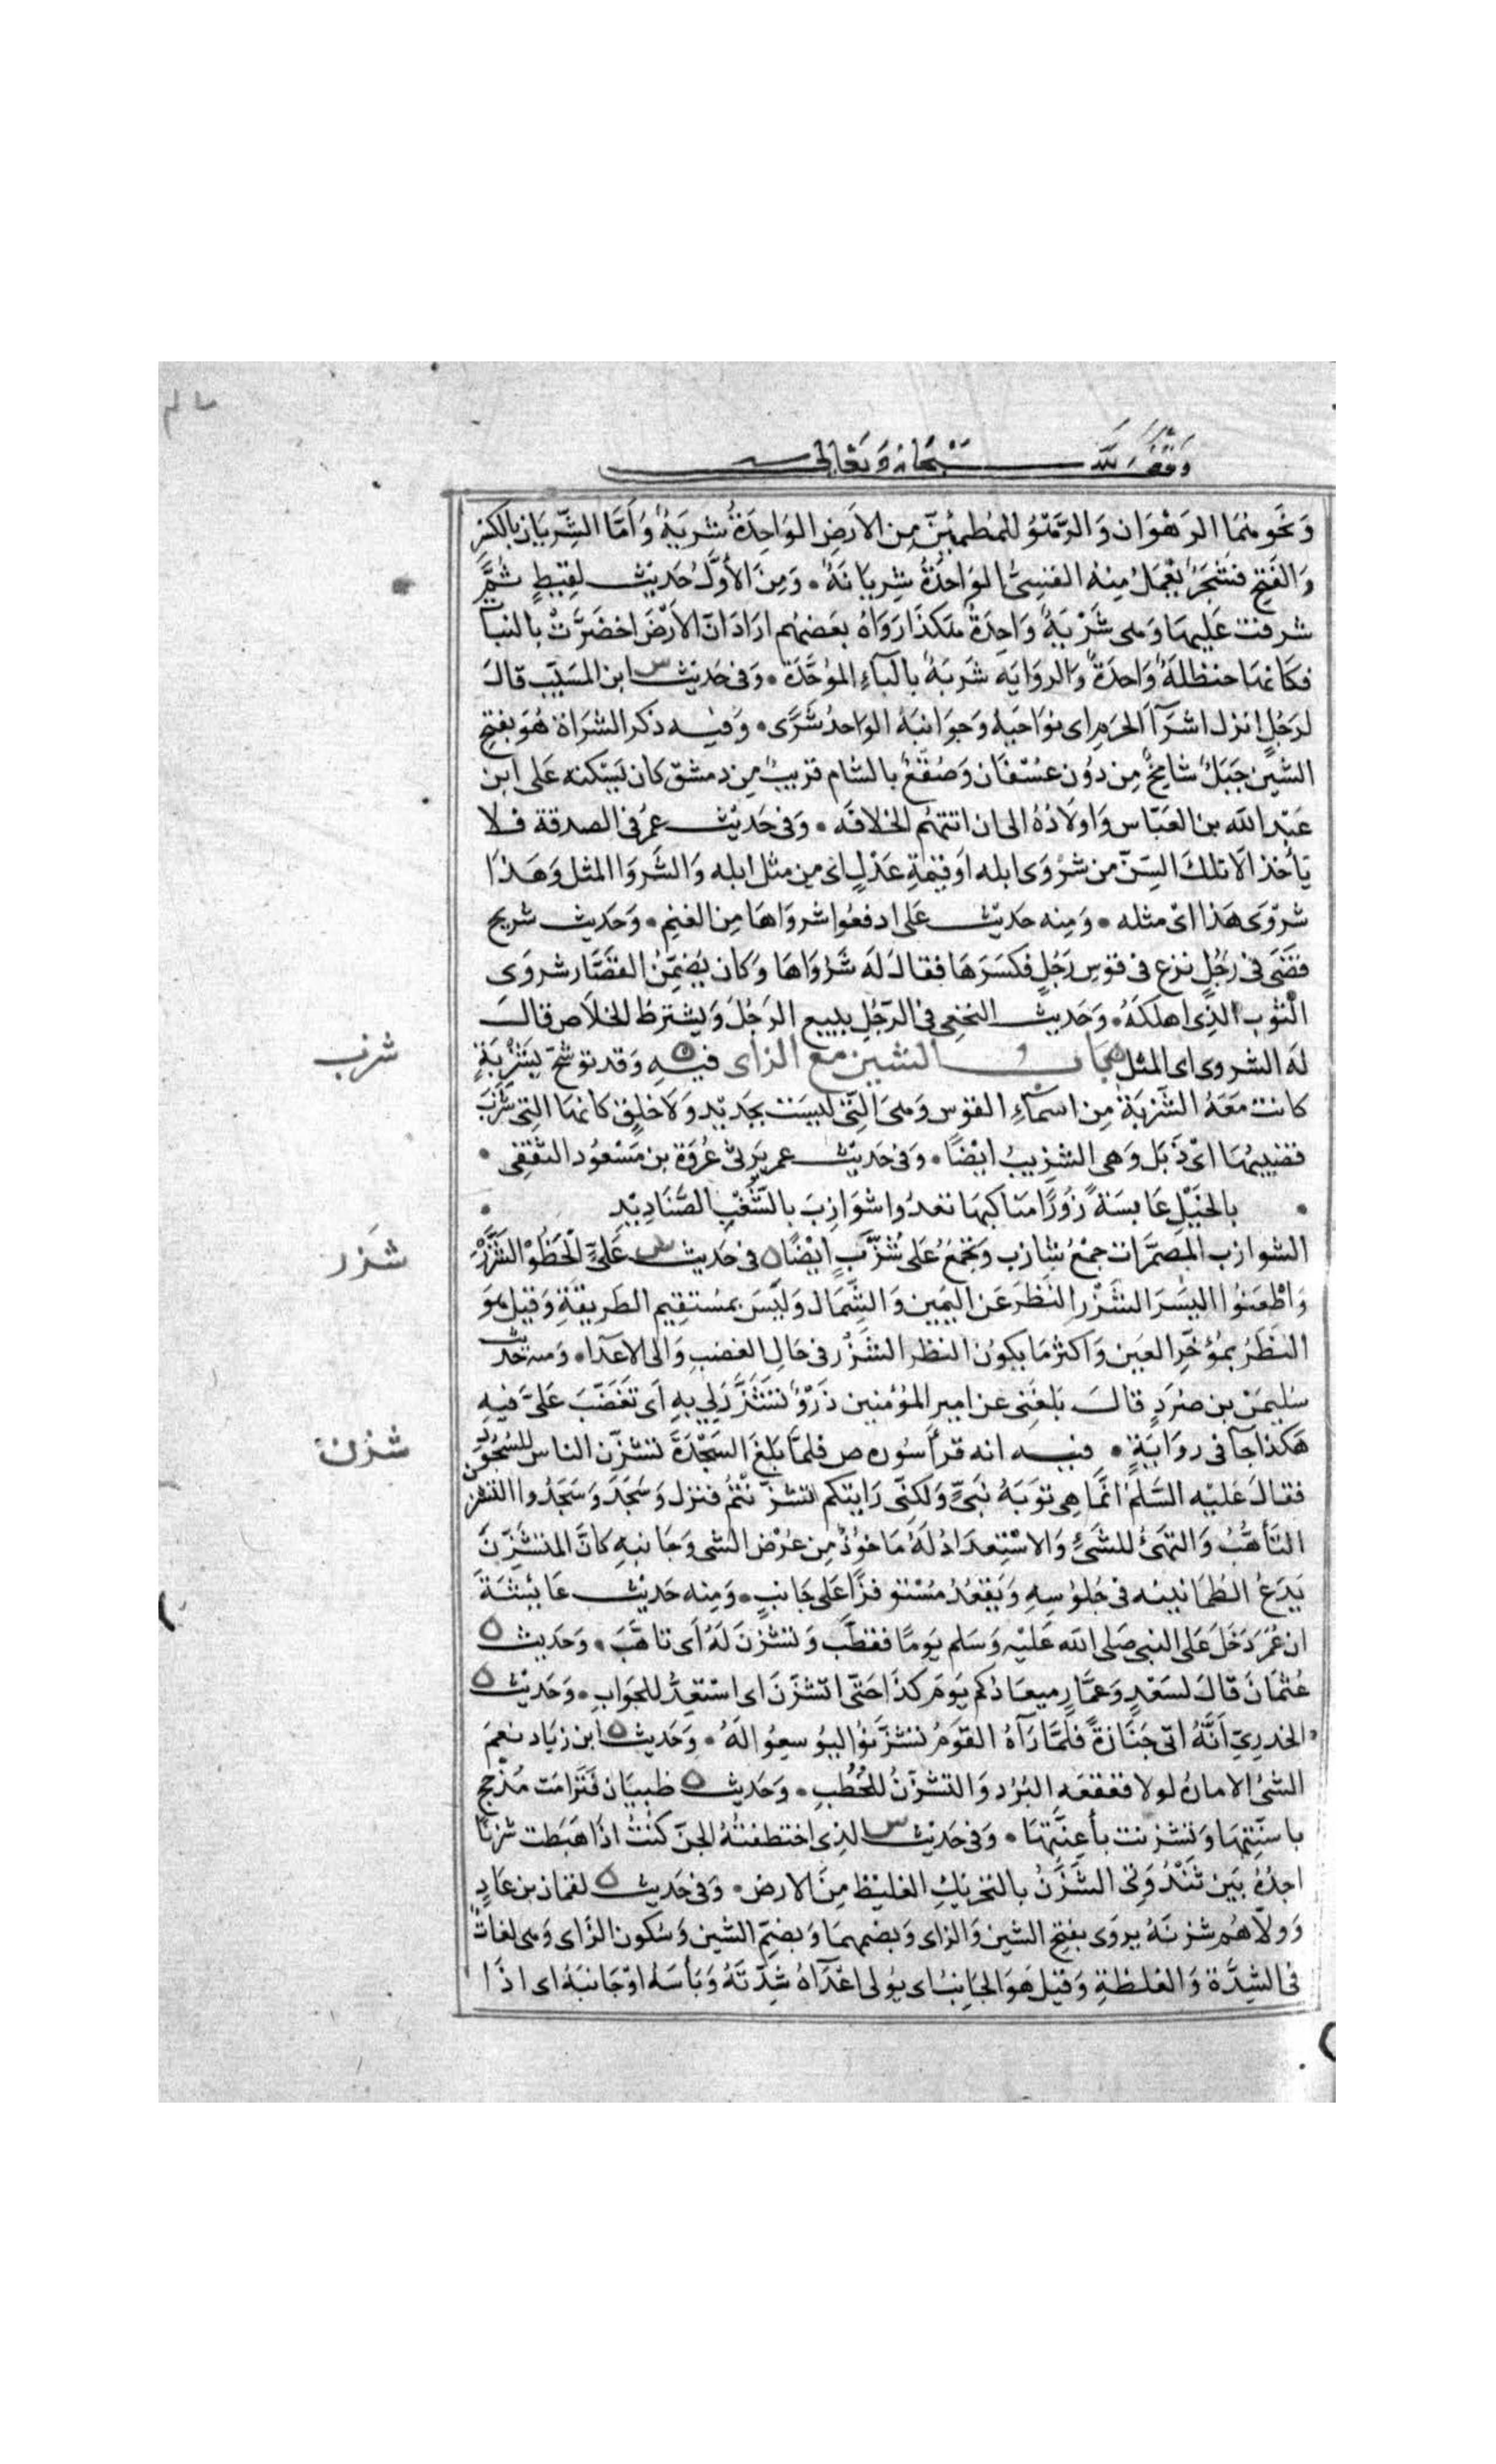 وقف لله سبحانه وتعالى
وَنحوهما الرَهْوَان وَالرَّهْوُ للمُطمئِنّ مِن الاَرضِ الوَاحِدَةُ شَريَةٌ وَاَمَّا الشِّريَان بالكسْرِ
وَالفَتحِ فشَجَرٌ يُعْمَلُ مِنهُ القِسِىُّ الوَاحِدَةُ شِريَانَةٌ . وَمِنَ الأوَّل حَدِيث لقِيطٍ ثُمَّ
شرفت عَلَيهَا وَهى شَرْيَةٌ وَاحِدَةٌ هكَذَا رَوَاهُ بَعضهُم ارَادَ انّ الاَرْضَ اخضَرَّتْ بالنبا
فكَانهَا حنظلةٌ وَاحدَةٌ وَالروَايَه شَرَبَةٌ بالبَآءِ المُوَحَّدَة . وَفى حَدِيث س ابن المسَيّب قالَ
لرَجُلٍ انزل اشرَآءَ الحَرَمِ اى نوَاحيَهُ وَجوَانبَهُ الوَاحدُ شَرًى . وَفيه ذكر الشرَاة هُوَ بفتحِ
الشين جَبَلٌ شامِخٌ مِن دُون عسْفَان وَصُقعٌ بالشام قريبٌ مِن دمشق كان يَسْكنه عَلى ابن
عَبْد الله بن العَبّاس وَاولاَدُهُ الى ان اتتهُم الخلافَه . وَفى حَدِيث عمر فى الصدقة فلا
يَأخذ الّا تلكَ السِنّ من شرْوَى ابله اوقِيمَةِ عَدْلٍ اى مِن مثل ابله وَالشَروَا المثل وَهَذَا
شرْوَى هَذا اىْ مثله . وَمِنه حَدِيث عَلى ادفعُوا شروَاهَا مِن الغنم . وَحَديث شريح
قضَى فى رَجُلٍ نزع فى قوْس رَجُلٍ فكسَرَهَا فقالَ لَه شَرْوَاهَا وَكان يُضَمّنُ القصَّار شروَى
الثوْب الذِى اهلكَهُ . وَحَديث النخعِى فى الرّجُلِ يبيع الرَجُلَ وَيشترطُ الخلاَص قالَ
لَه الشروى اى المثل ه باب الشين مع الزاى ه فيهِ وَقد توشحَ بشَزْبَةٍ
كانت مَعَهُ الشَزبَة مِن اسمَاءِ القوْس وَهىَ التِّى ليسَت بجَدِيدٍ وَلاَ خلِقٍ كانهَا التِى شَزَبَ
قضيبهَا اىْ ذَبَل وَهى الشزِيبُ ايضًا . وَفى حَديث عمر يَرثى عُرْوَة بن مَسْعُود الثقفِى .
. بالخَيْلِ عَابسَةً زُورًا مَناكبهَا تعدُوا شوَازِبَ بالشُّعْثِ الصَّنَادِيْدِ .
الشوازب المضمَّرات جمْعُ شازب وَيجمَعُ عَلى شُزَّبٍ ايْضًا ه فى حَديث س عَلىٍّ الْحَظُوْا الشَزْرَ
وَاطعَنُوا اليَسَرَ الشَزْر النَظرَ عَن اليَمِين وَالشِّمَال وَليْسَ بمسْتقِيم الطَرِيقةِ وَقيل هوَ
النَظَرُ بمُؤخّرِ العَين وَاكثرُ مَا يكُون النظر الشَزْر فى حَالِ الغضبِ وَالى الاعدَاء . وَمنه حديث
سُليمٰن بن صُرَدٍ قالَ بَلغَنِى عن امِير المؤمنين ذَرْوٌ تشَذَّرَ لى بهِ اَى تغَضَّبَ عَلىَّ فيهِ
هَكذا جآ فى روَايَةٍ . فيه انه قرأ سُوره ص فلمَّا بَلغَ السَجْدَةَ تشزّن الناس للسُجُود
فقالَ عَليْه السَّلَم انّمَا هِى تَوبَة نَبىٍّ وَلكنّى رَايتكم تشزّنتُم فنزل وَسَجَدَ وَسَجَدُوا التشزن
التَأهُّبُ وَالتهَىّء للشَىْءِ وَالاسْتِعدَادُ لَهُ مَاخُوْذٌ مِن عُرْض الشى وَجَانبهِ كانّ المتشَزّنَ
يَدَعُ الطمَانينه فى جُلوُسِهِ وَيَقعُدُ مُسْتوفزًا عَلى جَانبٍ . وَمِنه حَدِيث عَائشَةَ
ان عُمَر دَخَلَ عَلى النبى صَلى الله عَليْه وَسَلم يَومًا فقطَّب وَتشزّنَ لَهُ اَى تاهَّبَ . وَحَدِيث ه
عُثمَان قالَ لسَعْدٍ وَعمَّارٍ ميعَادُكم يَومَ كذَا حَتّى اتشزّنَ اى اسْتعِدُّ للجَوَابِ . وَحَدِيث ه
الخدرِىّ اَنَّهُ اتى جَنَازةً فلَمَّا رَآهُ القوَمُ تشزَّنوُا ليُوسعِوُا لَهُ . وَحَديث ه ابن زيَاد نعمَ
الشىُ الامارَة لولا قعقعَه البُرُد وَالتشزّنُ للخُطَبِ . وَحَدِيث ه ظبيَان فتَرامَت مَذحج
باسنّتهَا وَتشزنت بأعِنّتهَا . وَفى حَديث س الذِى اختطفتْهُ الجنّ كنتُ اذَا هَبَطت شزنًا
اجدُهُ بَين ثَنْدُوَتَى الشَّزَنُ بالتحريكِ الغليظ مِنَ الارض . وَفى حَديث ه لقمَان بن عَادٍ
وَوَلاَّهُم شزنَهُ يروَى بفتحِ الشين وَالزاى وَبضمهمَا وَبضمّ الشين وَسُكون الزَاى وَهى لغاتٌ
فى الشِدَّة وَالغلظةِ وَقيل هَوَ الجَانِبُ اى يُولى اعْدَآءَهُ شِدّتَهُ وَبَأسَهُ اوْ جَانبَهُ اى اذَا
شزب
شَزر
شزن